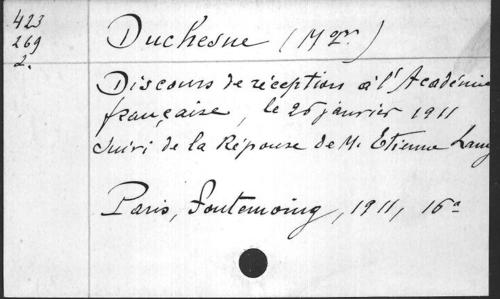 423
269
2.
Duchesne (Mgr.)
Discours de réception à l'Académie
française, le 26 janvier 1911
suivi de la Réponse de M. Etienne Lamy
Paris, Fontemoing, 1911, 16º